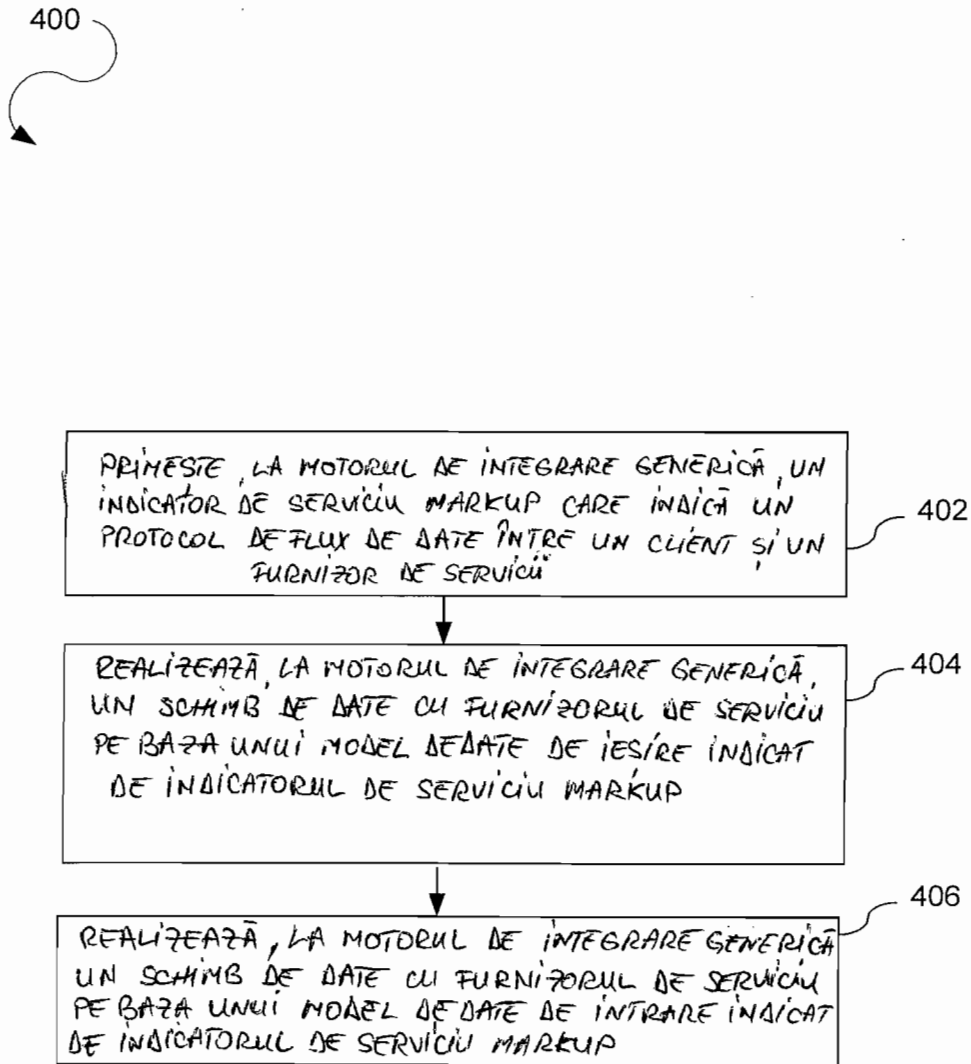 400
PRIMESTE, LA MOTORUL DE INTEGRARE GENERICĂ, UN
INDICATOR DE SERVICIU MARKUP CARE INDICĂ UN
PROTOCOL DE FLUX DE DATE ÎNTRE UN CLIENT ȘI UN
FURNIZOR DE SERVICII
402
REALIZEAZĂ, LA MOTORUL DE INTEGRARE GENERICĂ,
UN SCHIMB DE DATE CU FURNIZORUL DE SERVICIU
PE BAZA UNUI MODEL DE DATE DE IESIRE INDICAT
DE INDICATORUL DE SERVICIU MARKUP
404
REALIZEAZĂ, LA MOTORUL DE INTEGRARE GENERICĂ
UN SCHIMB DE DATE CU FURNIZORUL DE SERVICIU
PE BAZA UNUI MODEL DE DATE DE INTRARE INDICAT
DE INDICATORUL DE SERVICIU MARKUP
406